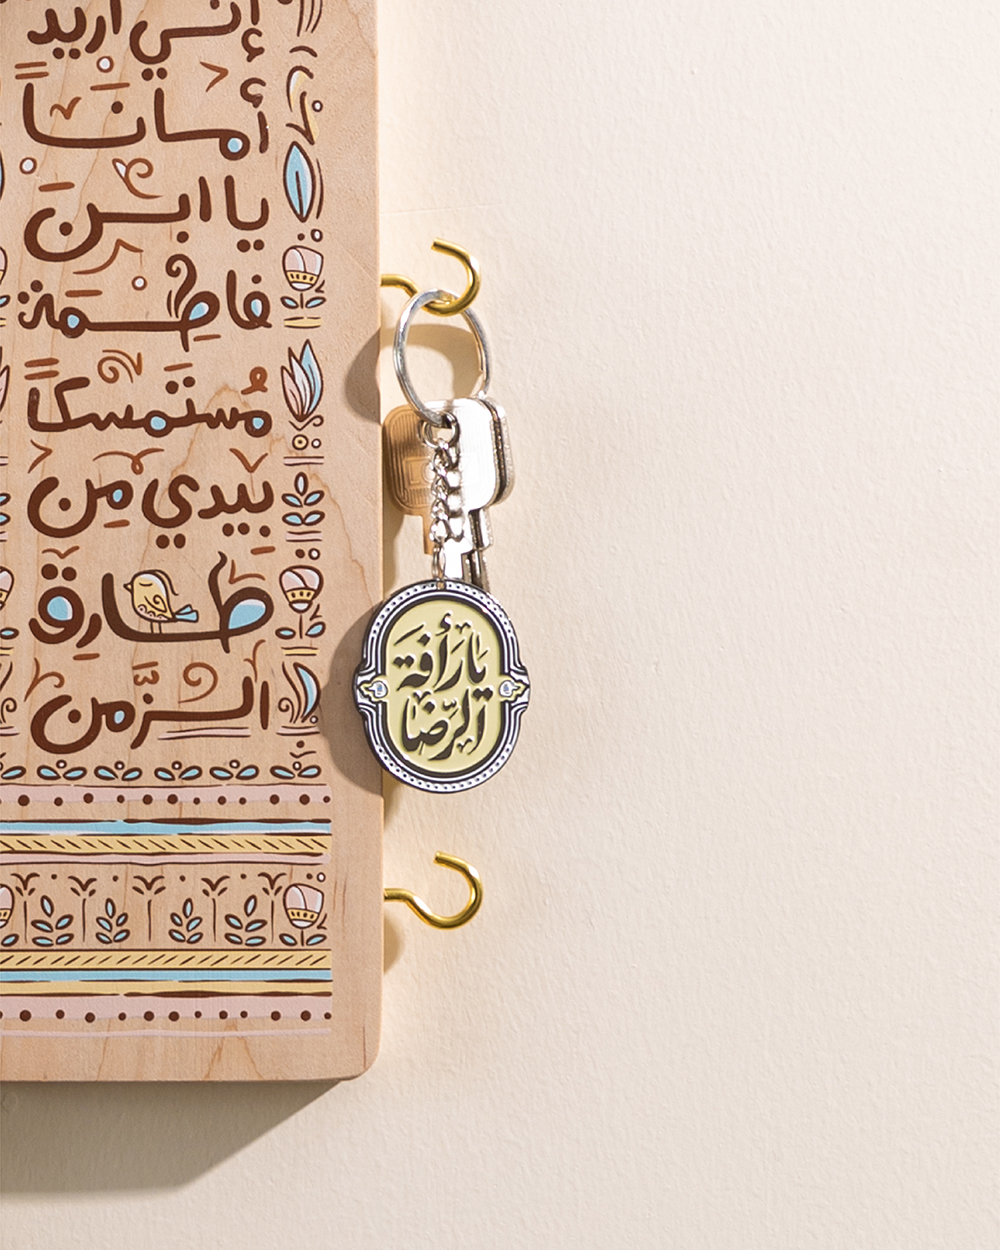 إنّي أريد
أمانًا
يا ابن
فاطمة
مُستمسكًا
بيدي من
طارق
الزمن
يا رأفة
الرضا